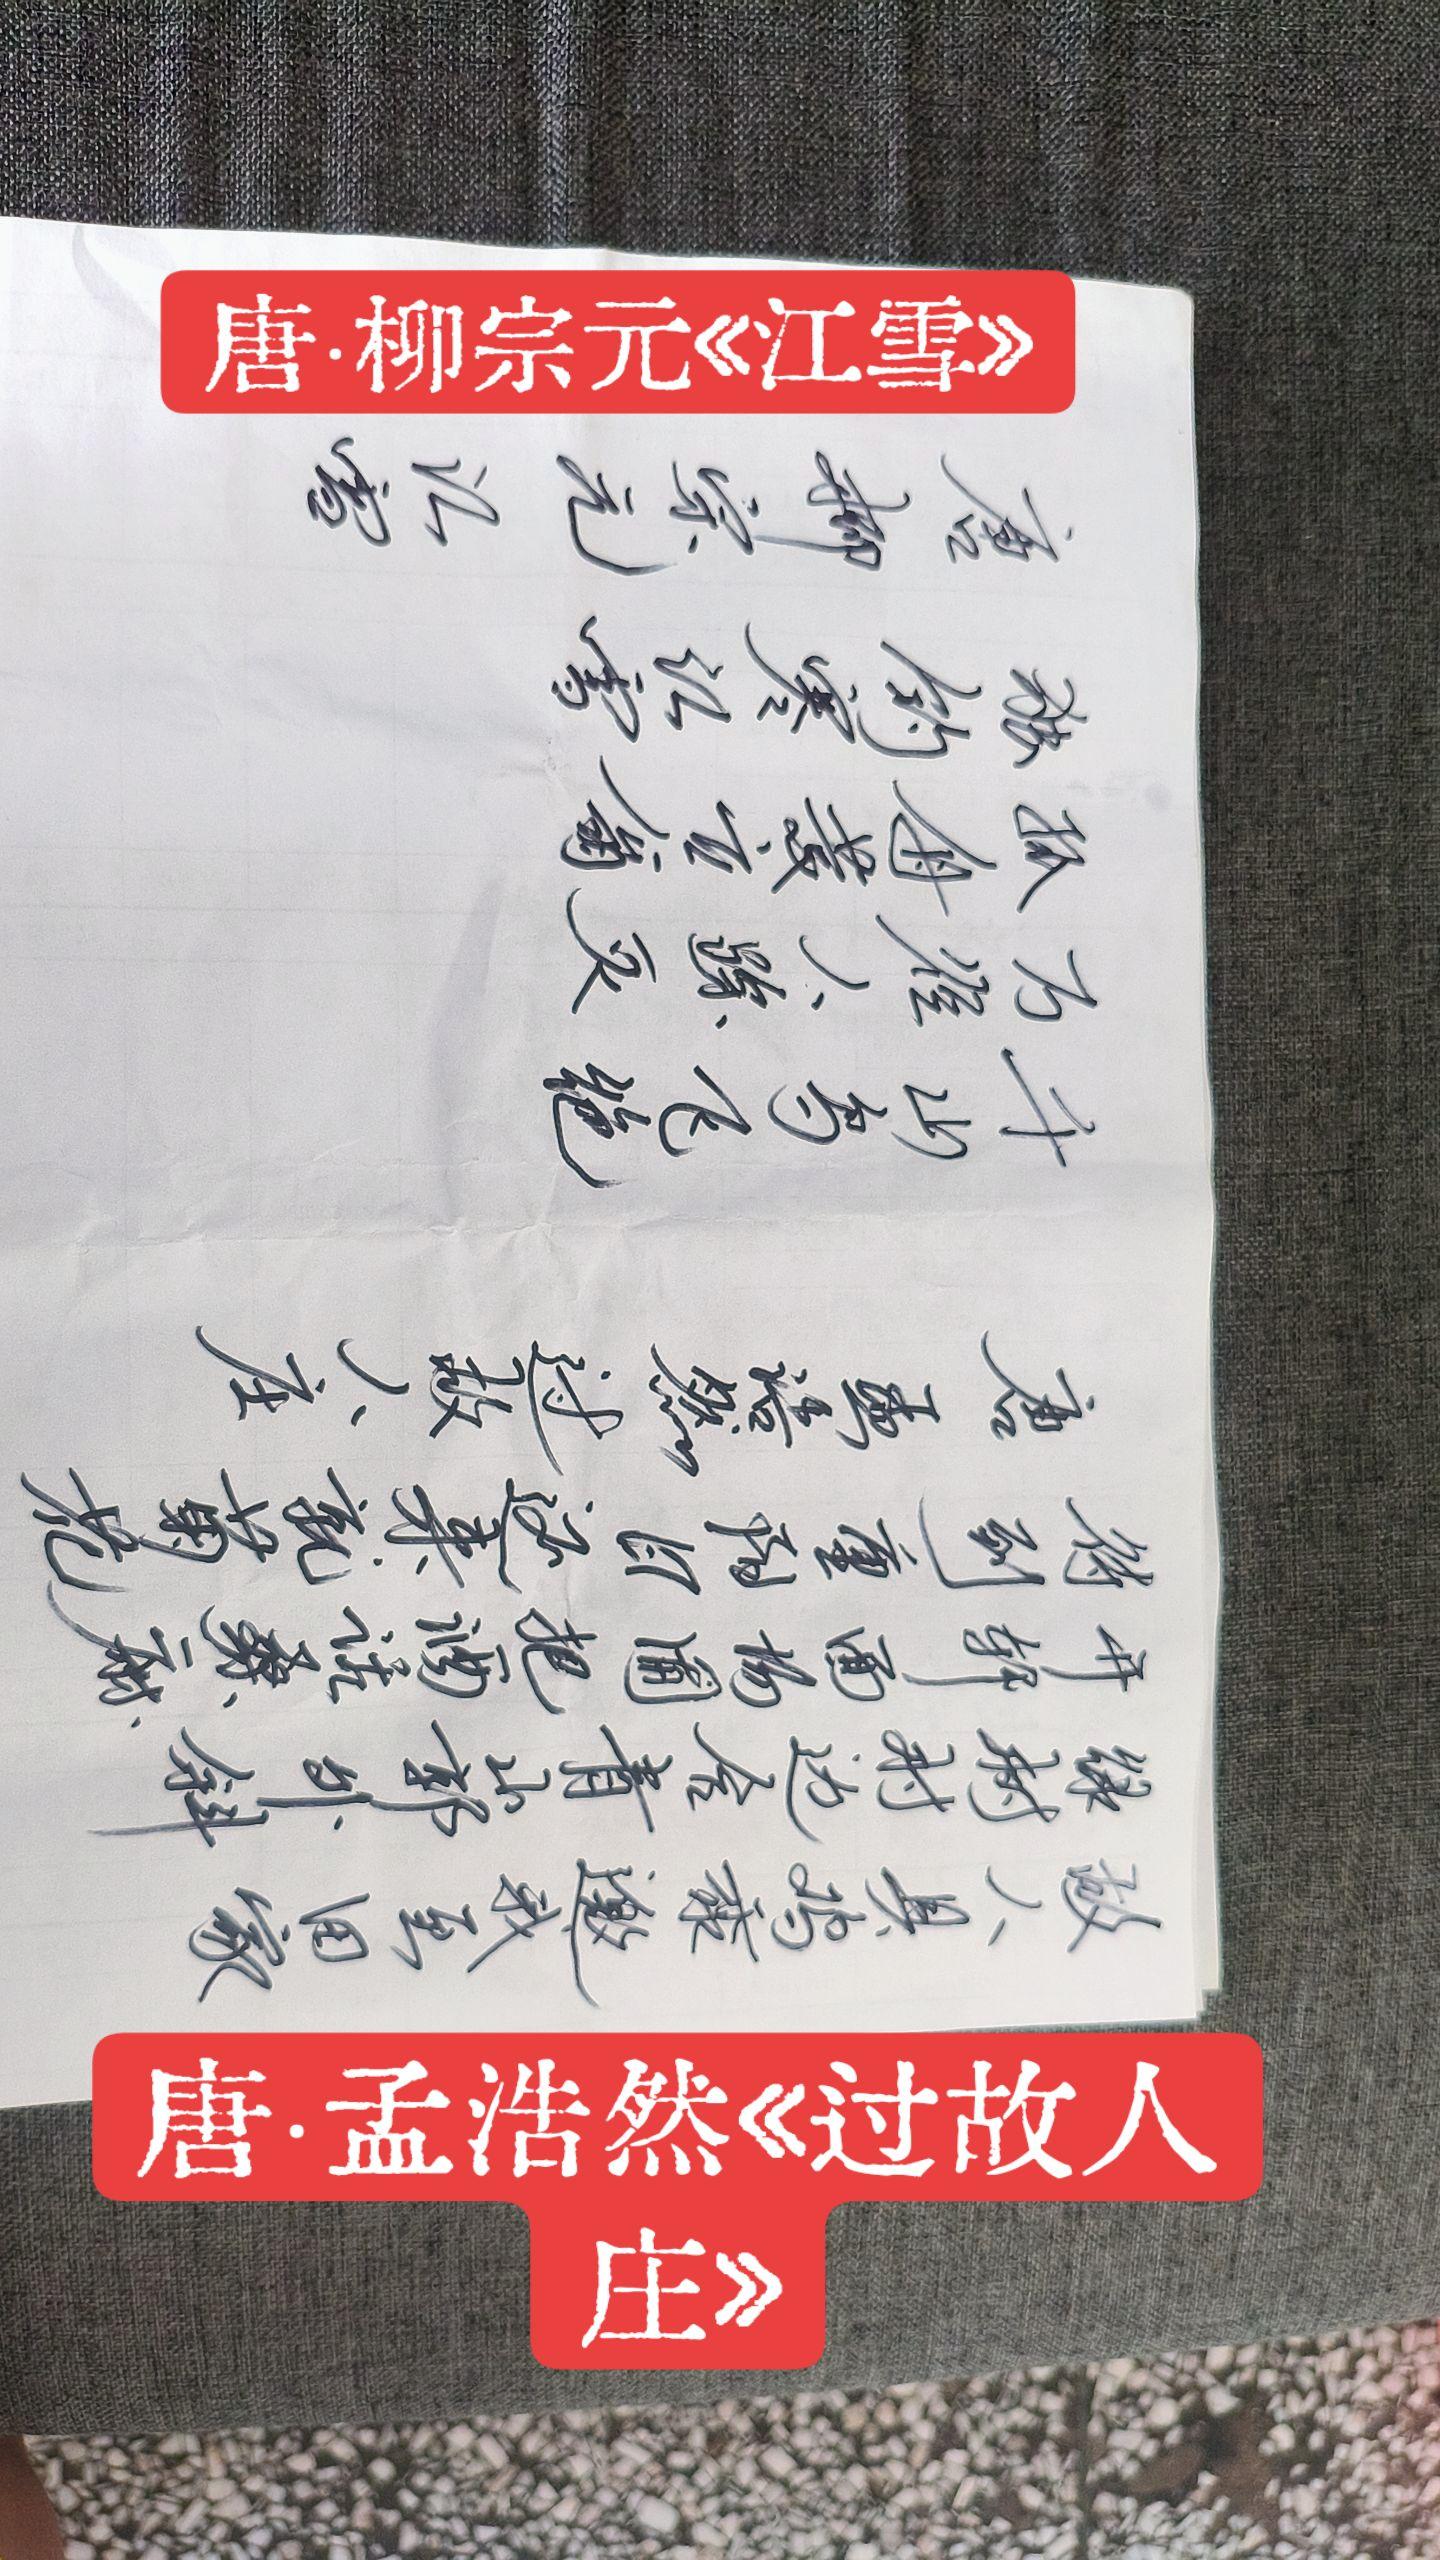 唐·柳宗元《江雪》
故人具鸡黍邀我至田家
绿树村边合青山郭外斜
开轩面场圃把酒话桑麻
待到重阳日还来就菊花
唐孟浩然过故人庄
千山鸟飞绝
万径人踪灭
孤舟蓑笠翁
独钓寒江雪
唐柳宗元江雪
唐·孟浩然《过故人
庄》